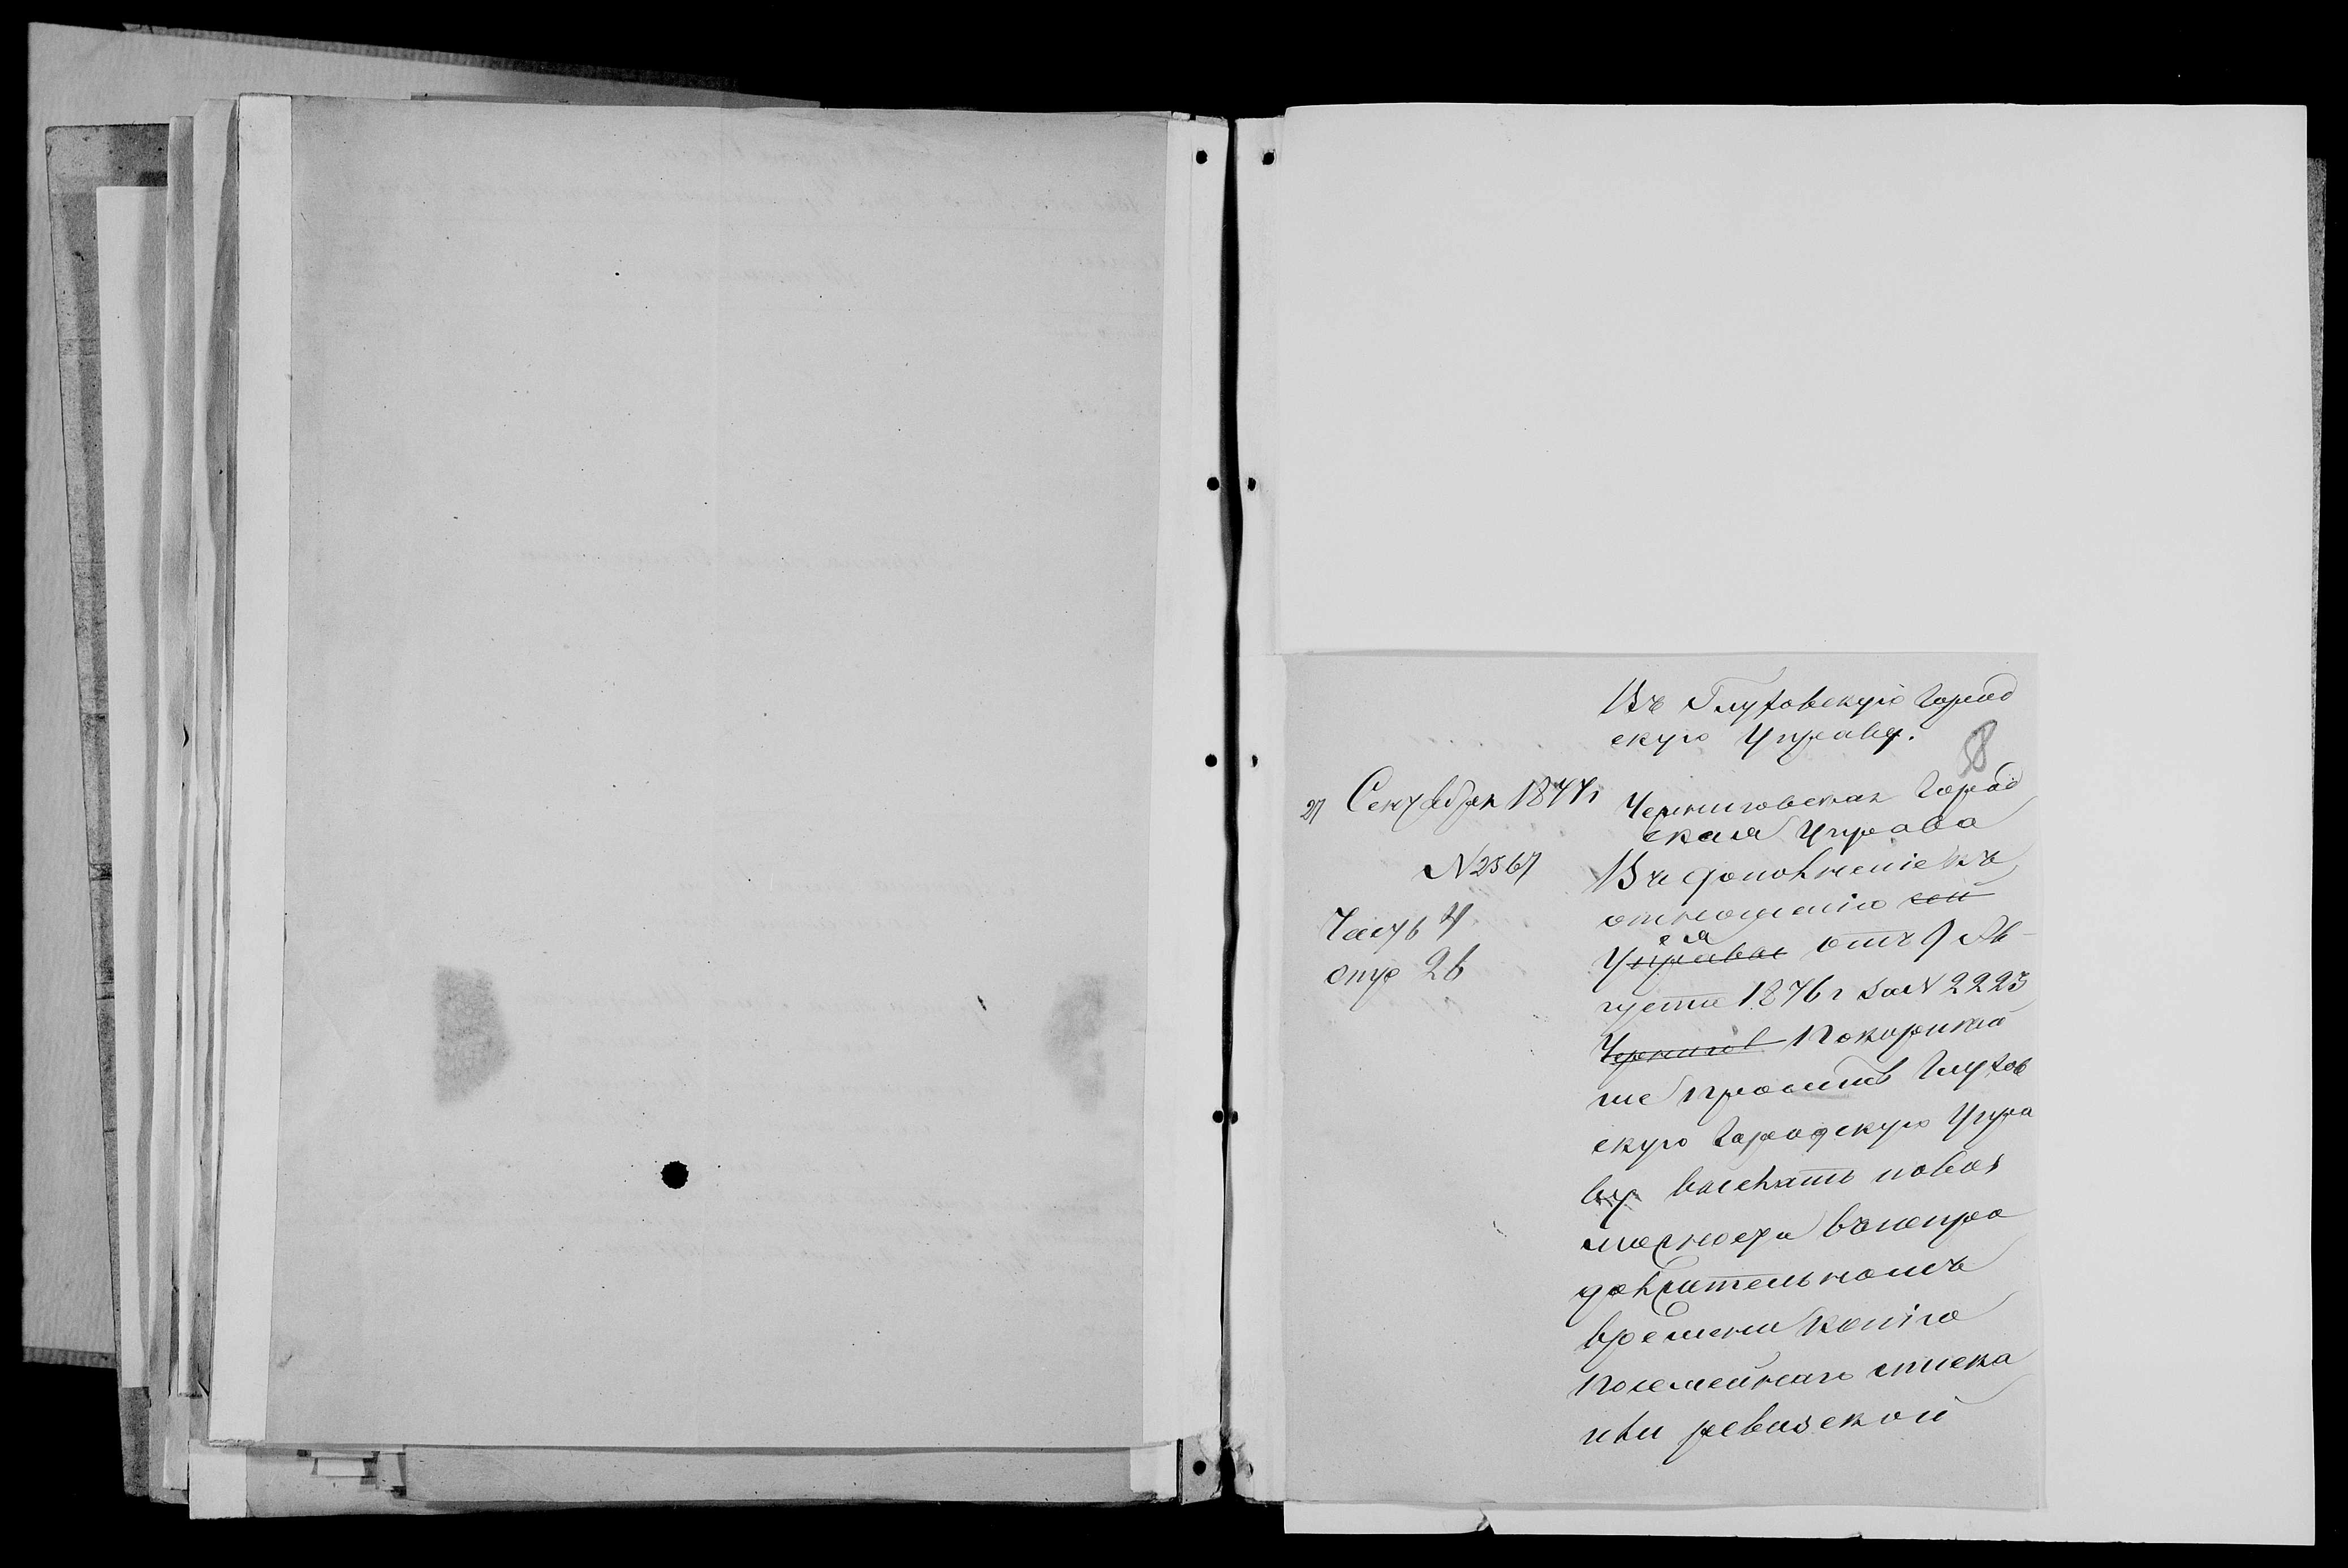 Въ Глуховскую Город
скую Управу.
58
27 Сентября 1877 г
№ 2567
Часть 4
опус 26
Черниговская Город
ская Управа
Въ дополненіе къ
отношенію сей
Управы ея отъ 9 Ав-
густа 1876 г за № 2223
Чернигов Покорней
ше проситъ Глухов
скую Городскую Упра
ву выслать по воз
можности въ непро
должительномъ
времени копію
посемейнаго списка
или ревизской